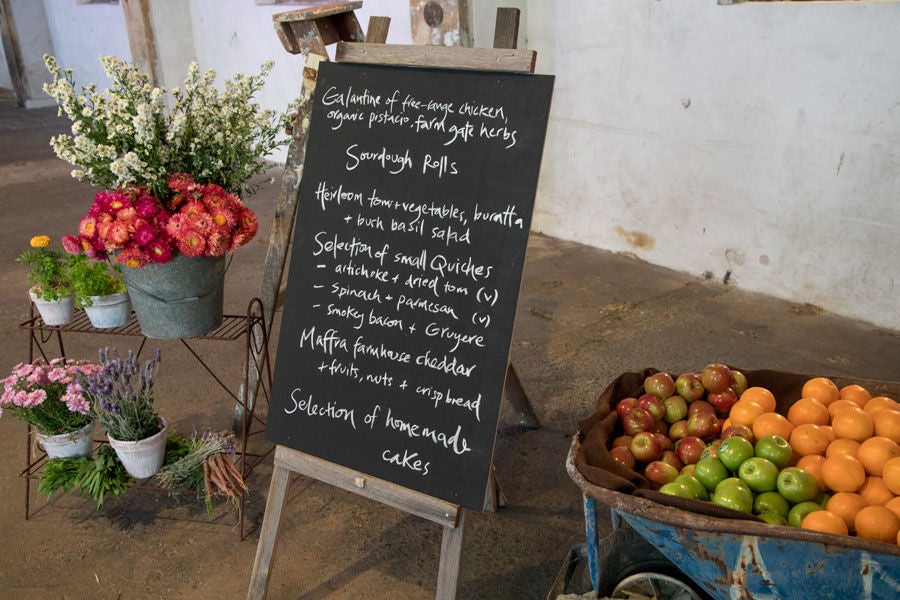 Galantine of free-range chicken,
organic pistacio, farm gate herbs
Sourdough Rolls
Heirloom tom + vegetables, buratta
+ bush basil salad
Selection of small Quiches
- artichoke + dried tom (v)
- Spinach + parmesan (v)
- smokey bacon + Gruyere
Maffra farmhouse cheddar
+ fruits, nuts + crispbread
Selection of homemade
cakes